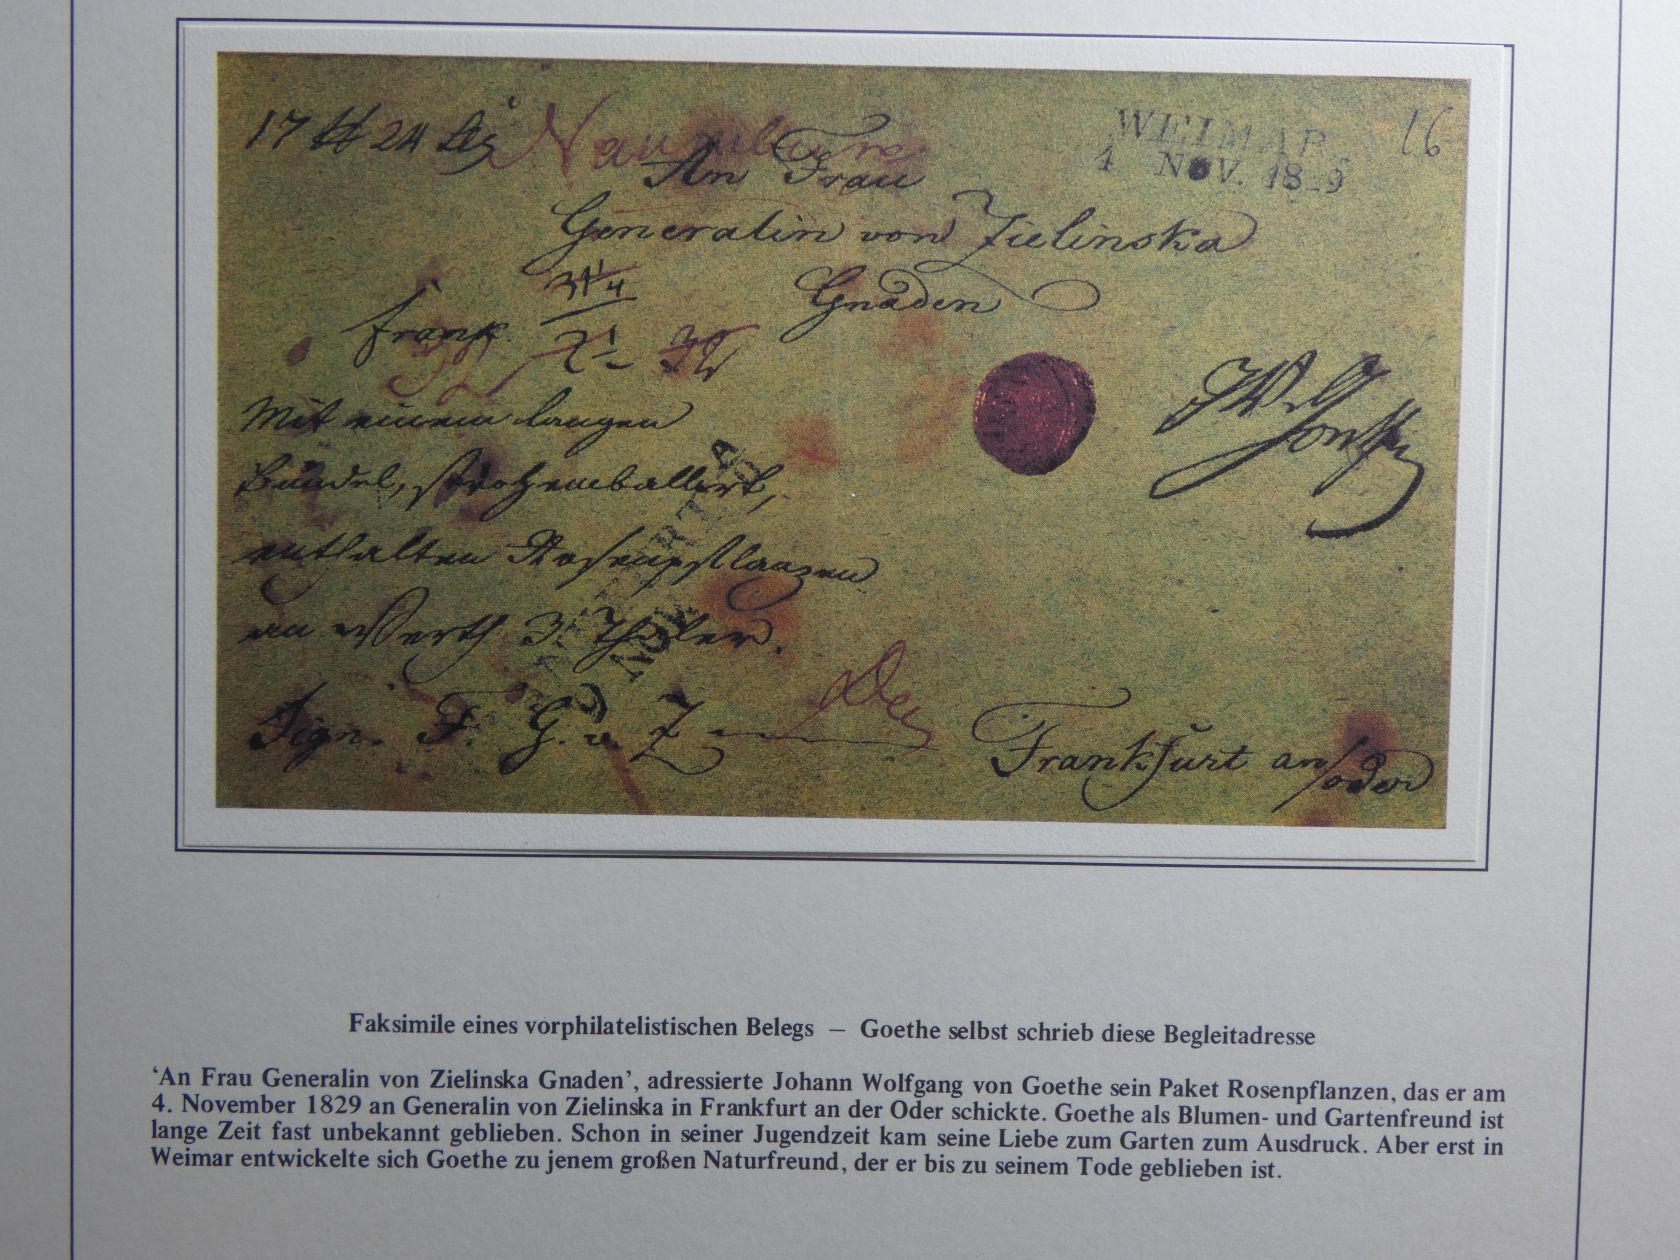 17 24
Naumburg
WEIMAR
NOV.
16
An Frau
Generalin von Zielinska
Gnaden
frank.
Mit einem langen
Bündel, strohemballirt,
enthalten Rosenpflanzen
an Werth 3. Thaler.
NOV
Sign. F. G. v. Z
Frankfurt an
oder
Faksimile eines vorphilatelistischen Belegs – Goethe selbst schrieb diese Begleitadresse
‘An Frau Generalin von Zielinska Gnaden’, adressierte Johann Wolfgang von Goethe sein Paket Rosenpflanzen, das er am
4. November 1829 an Generalin von Zielinska in Frankfurt an der Oder schickte. Goethe als Blumen- und Gartenfreund ist
lange Zeit fast unbekannt geblieben. Schon in seiner Jugendzeit kam seine Liebe zum Garten zum Ausdruck. Aber erst in
Weimar entwickelte sich Goethe zu jenem großen Naturfreund, der er bis zu seinem Tode geblieben ist.